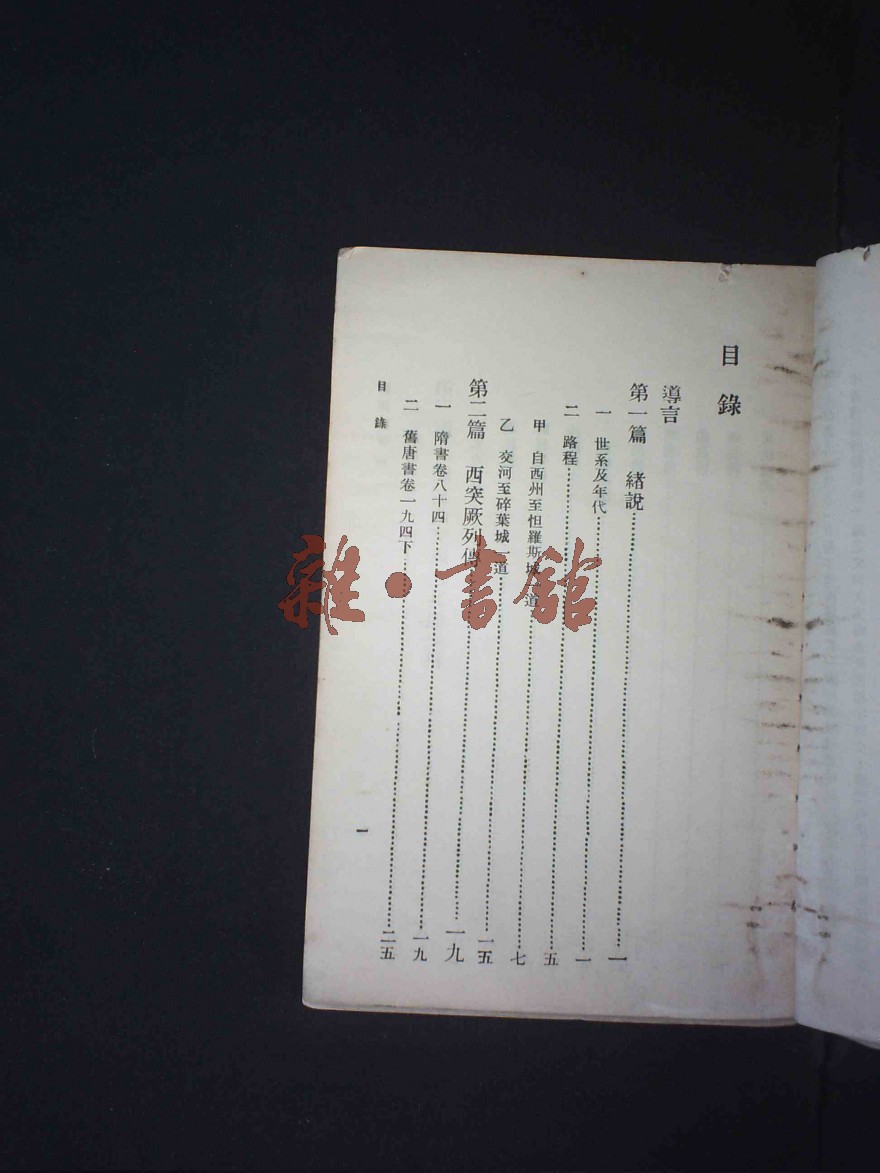 目錄
導言
第一篇 緒說……一
一 世系及年代……一
二 路程……五
甲 自西州至怛羅斯城一道……七
乙 交河至碎葉城一道……一五
第二篇 西突厥列傳……一九
一 隋書卷八十四……一九
二 舊唐書卷一九四下……二五
目錄 一
雜·書館